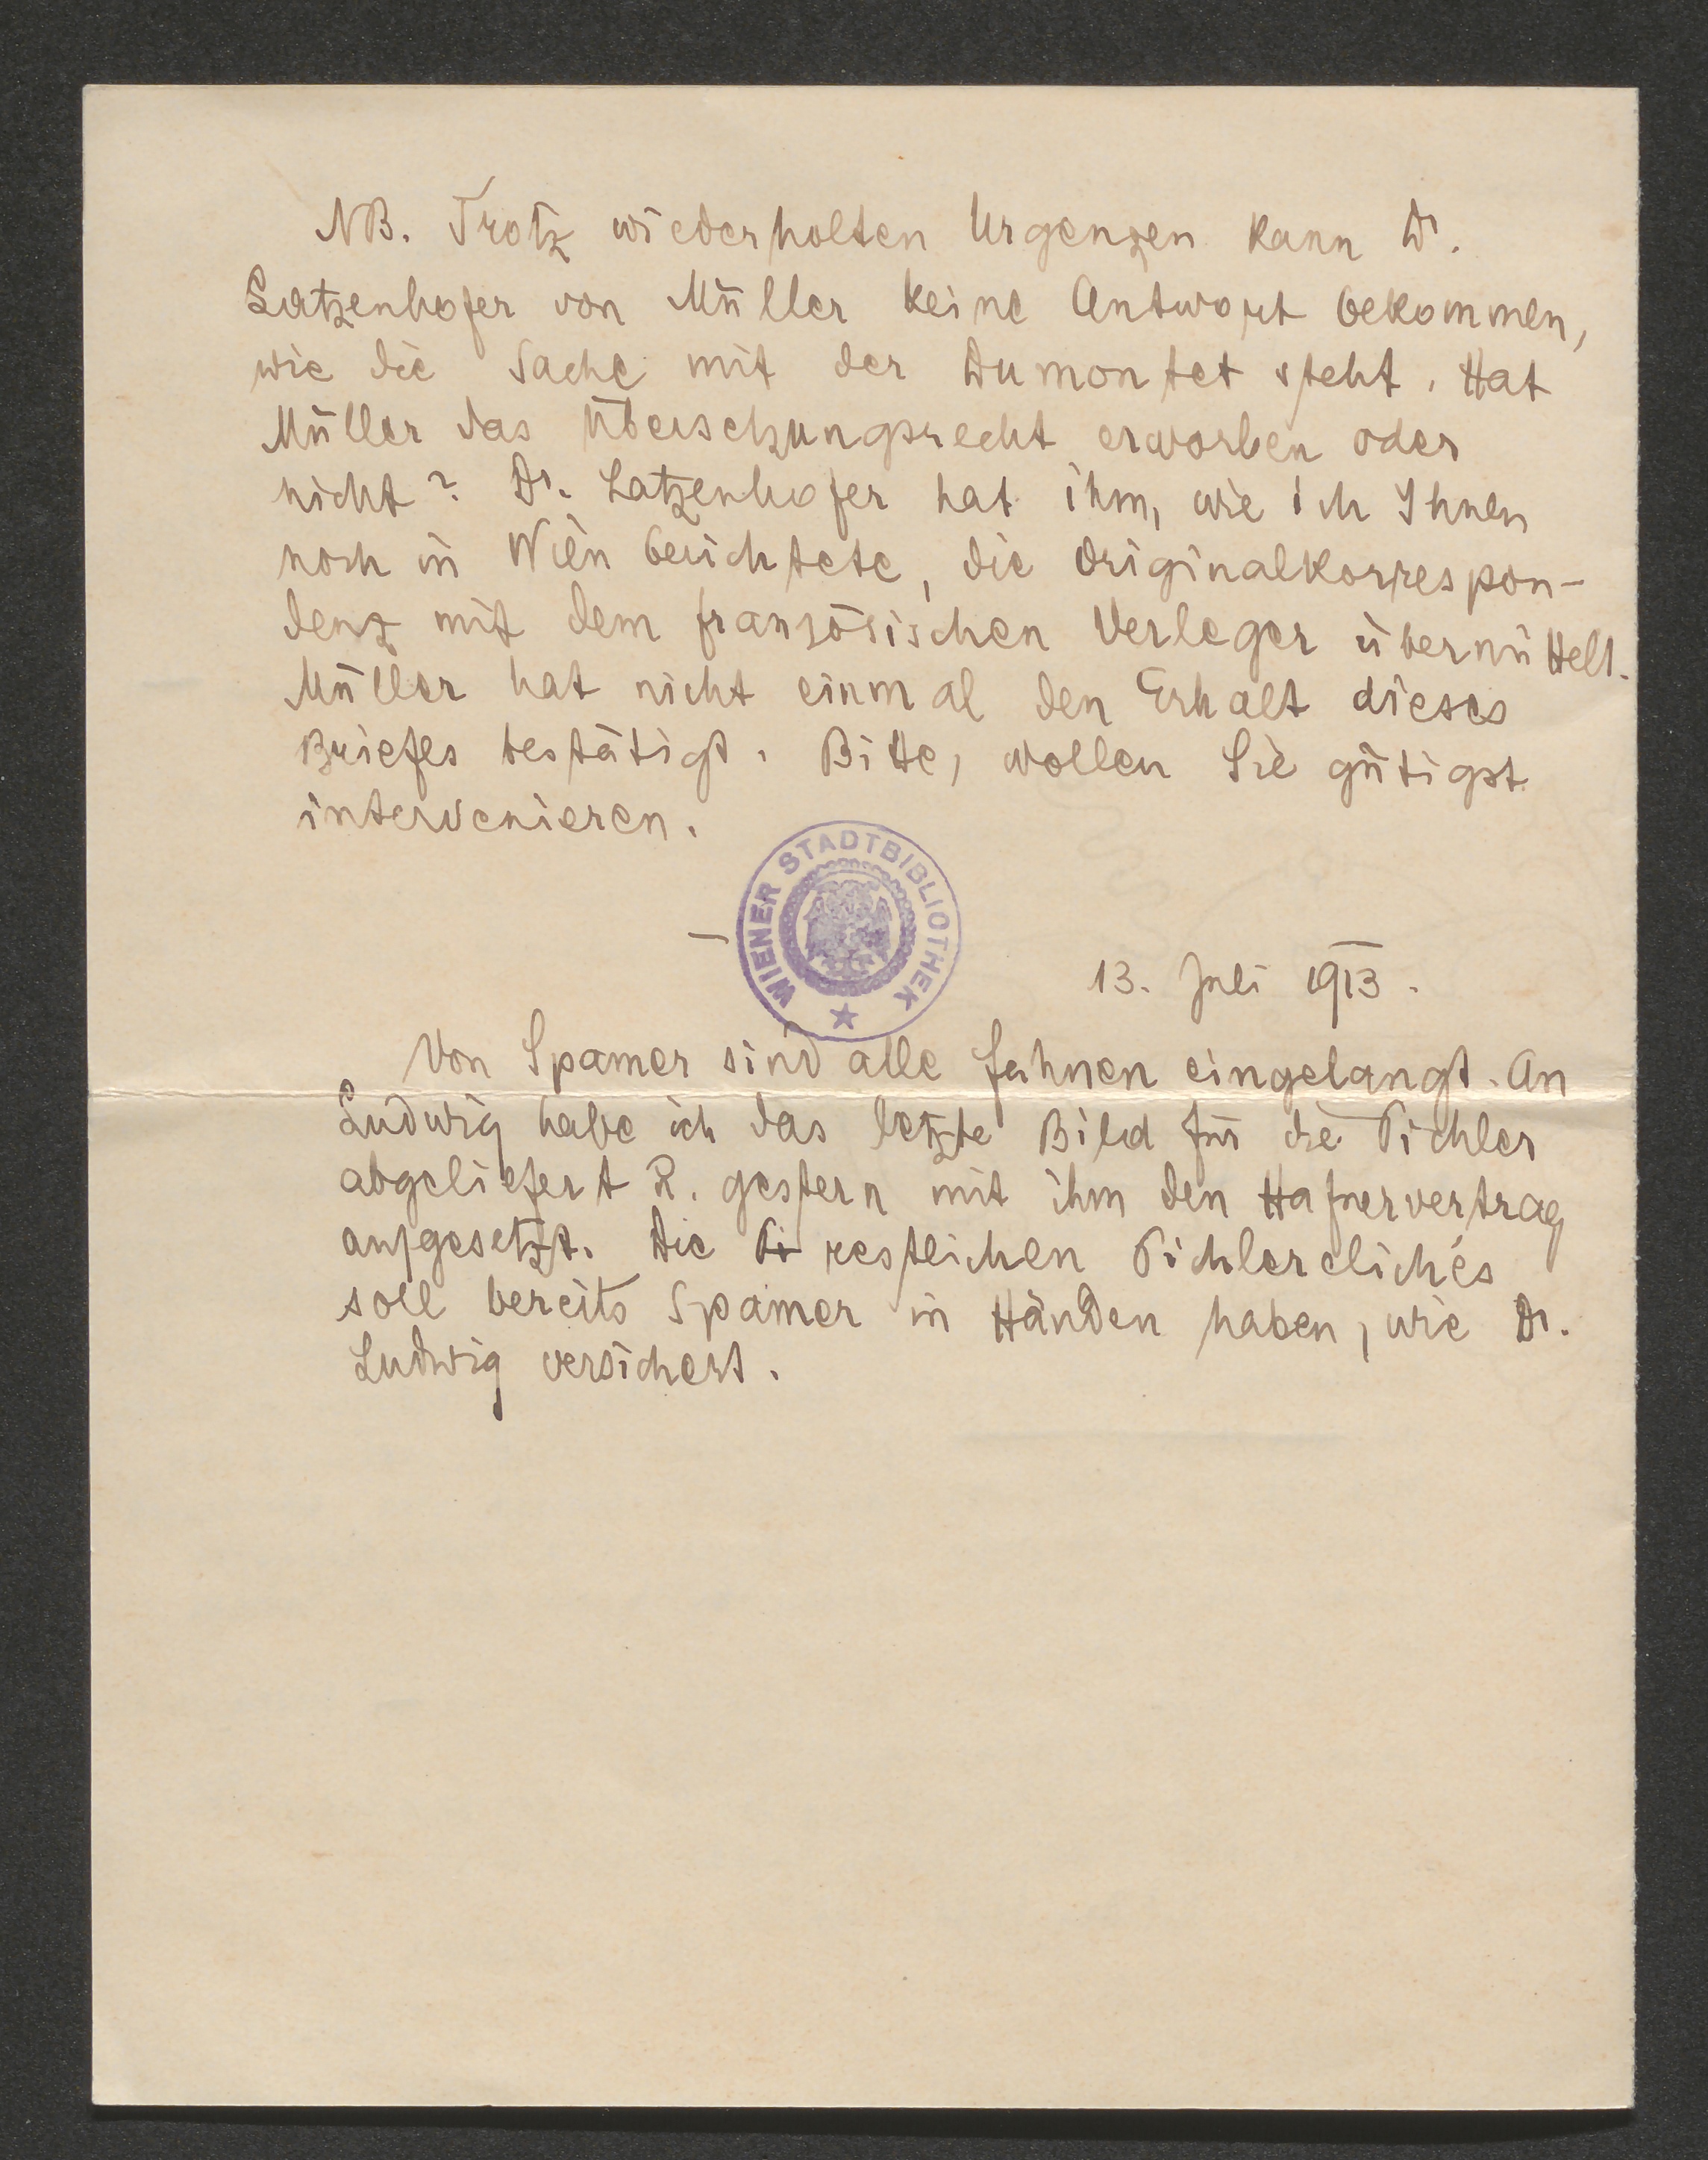 NB. Trotz wiederholten Urgenzen kann Dr.
Latzenhofer von Müller keine Antwort bekommen,
wie die Sache mit der Dumontet steht. Hat
Müller das Übersetzungsrecht erworben oder
nicht? Dr. Latzenhofer hat ihm, wie ich Ihnen
noch in Wien berichtete, die Originalkorrespon-
denz mit dem französischen Verleger übermittelt.
Müller hat nicht einmal den Erhalt dieses
Briefes bestätigt. Bitte, wollen Sie gütigst
intervenieren.
WIENER STADTBIBLIOTHEK
13. Juli 1913.
Von Spamer sind alle Fahnen eingelangt. An
Ludwig habe ich das letzte Bild für die Pichler
abgeliefert u. gestern mit ihm den Hafnervertrag
aufgesetzt. Die Pi restlichen Pichlercliché́s
soll bereits Spamer in Händen haben, wie Dr.
Ludwig versichert.